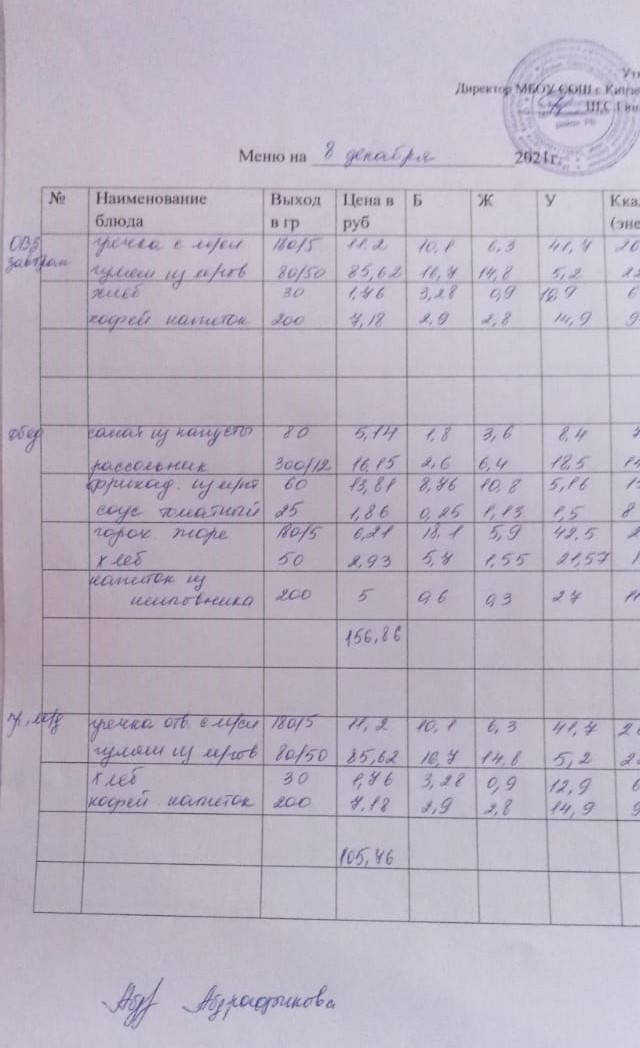 Директор МБОУ СОШ с.
Меню на 8 декабря 2021г.
№ Наименование блюда Выход в гр Цена в руб Б Ж У Ккал (эне
ОВЗ завтрак гречка с м/сл 180/5 11.2 10,1 6,3 41,7
гуляш из м/гов 80/50 85,62 16,7 14,8 5,2
хлеб 30 1,76 3,28 0,9 12,9 6
кофей напиток 200 7,18 2,9 2,8 14,9 9
обед салат из капусты 80 5,14 1,8 3,6 8,4
рассольник 300/12 16,15 2,6 6,4 18,5
фрикад. из мяс 60 13,81 8,76 10,8 5,16
соус томатный 25 1,86 0,25 1,13 1,5 8
горох пюре 180/5 6,21 18,1 5,9 42,5
хлеб 50 2,93 5,7 1,55 21,57
напиток из
шиповника 200 5 0,6 0,3 27
156,86
гречка отв. с м/сл 180/5 11,2 10,1 6,3 41,7
гуляш из м/гов 80/50 85,62 16,7 14,8 5,2
хлеб 30 1,76 3,28 0,9 12,9 6
кофей напиток 200 7,18 2,9 2,8 14,9 9
105,76